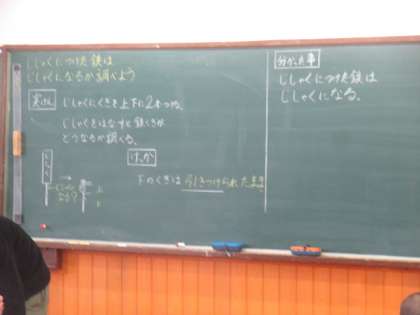 じしゃくにつけた鉄は
じしゃくになるか調べよう
実けん
じしゃくにくぎを上下に2本つけ、
じしゃくをはなすと鉄くぎが
どうなるか調べる。
けっか
下のくぎは引きつけられたまま
じしゃく
じしゃくに
なる?
上
下
分かった事
じしゃくにつけた鉄は
じしゃくになる。